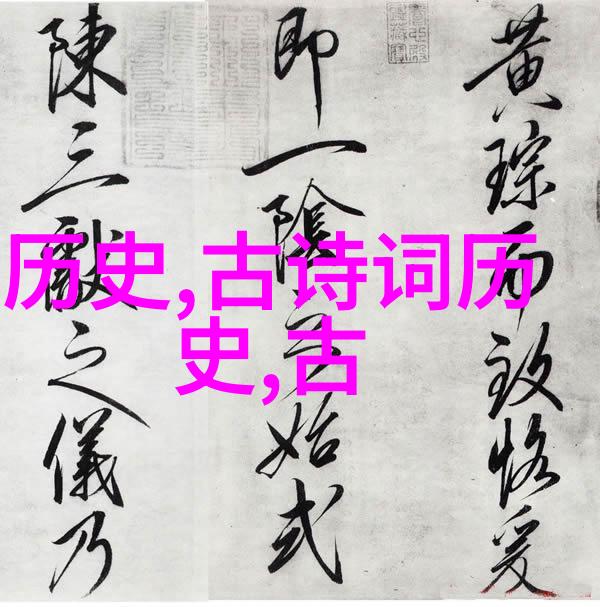 黄琮而致恪爰
即一陰之始式
陳三獻之儀乃
历史,古诗词历
史,古